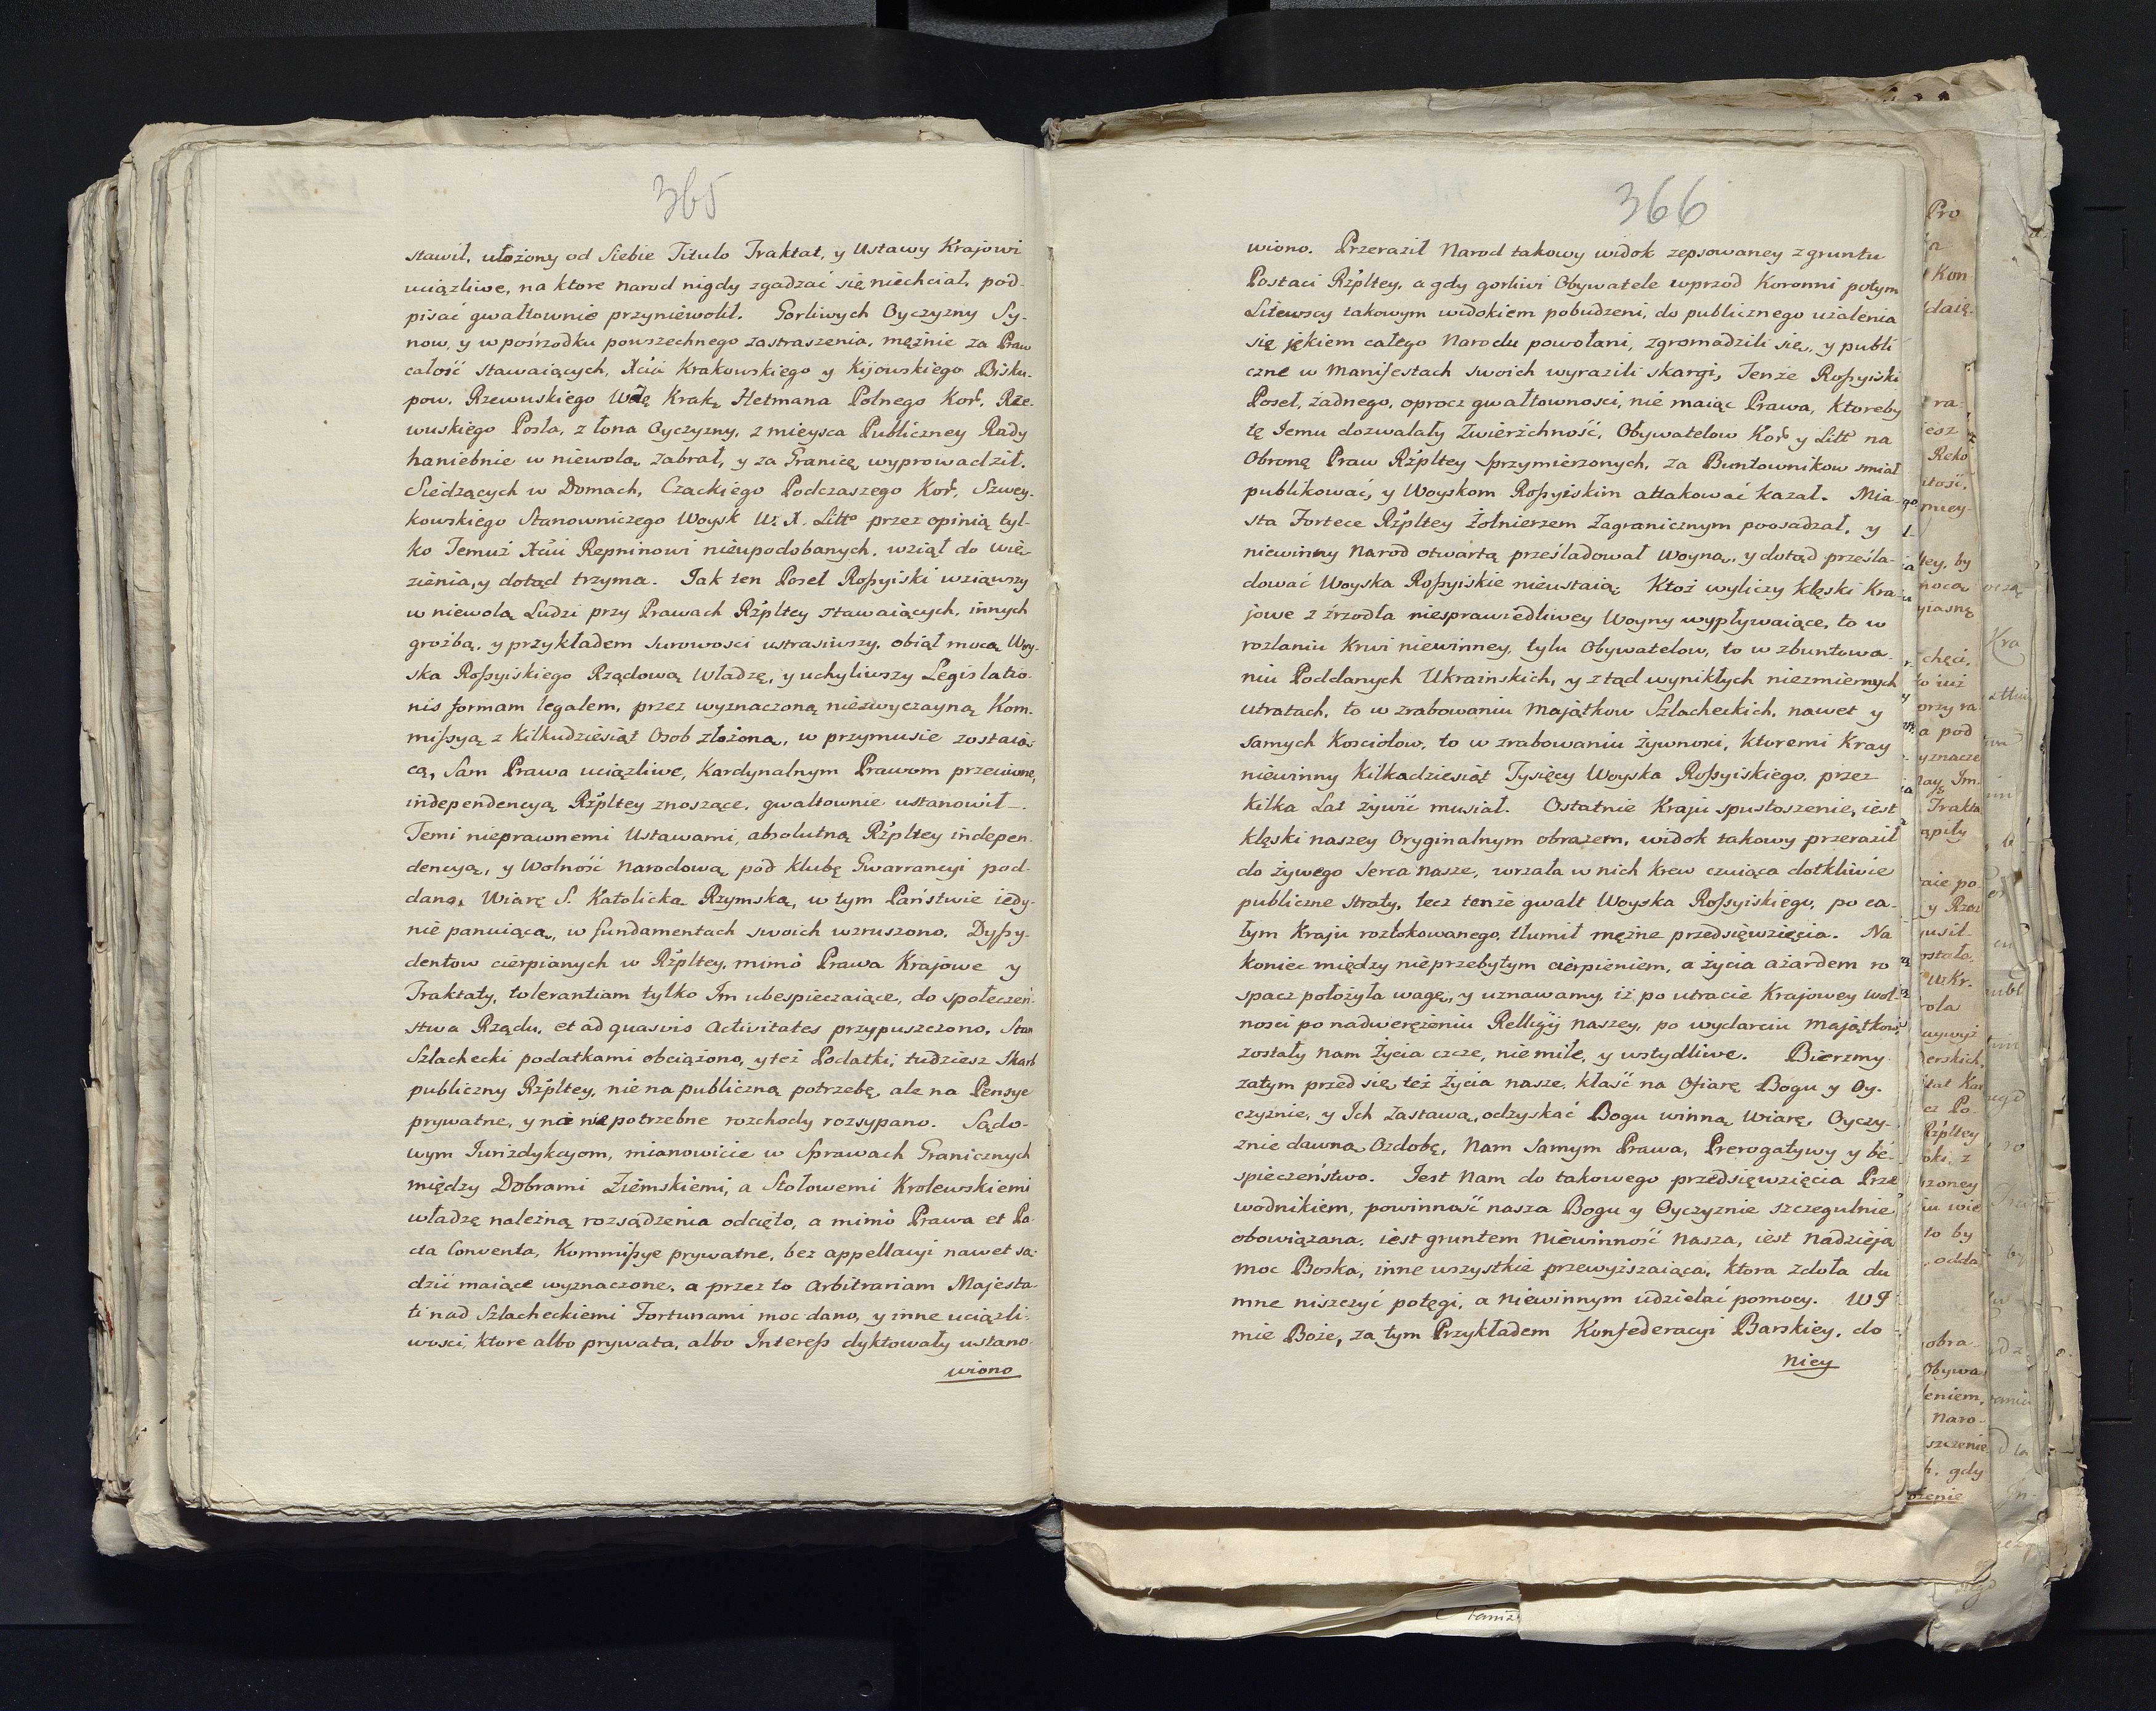 365
stawił, ułożony od Siebie Titulo Traktat, y Ustawy Krajowi
uciązliwe, na ktore Narod nigdy zgadzać się niechciał, pod-
pisać gwałtownie przyniewolił. Gorliwych Oyczyzny Sy-
now, y w pośrzodku powszechnego zastraszenia, mężnie za Praw
całość stawaiących, Xcia Krakowskiego y Kijowskiego Bisku-
pow, Rzewuskiego Wdę Krakg Hetmana Polnego Kor, Rze-
wuskiego Posła, z łona Oyczyzny, z mieysca Publiczney Rady
haniebnie w niewolą zabrał, y za Granicę wyprowadził.
Siedzących w Domach, Czackiego Podczaszego Kor, Szwey-
kowskiego Stanowniczego Woysk W. X. Litto przez opinią tyl-
ko Temuż Xciu Repninowi nieupodobanych, wziął do wię-
zienia, y dotąd trzyma. Jak ten Poseł Roßyiski wziąwszy
w niewolą Ludzi przy Prawach Rżpltey stawaiących, innych
groźbą, y przykładem surowości ustrasiwszy, obiął mocą Woy-
ska Roßyiskiego Rządową Władzę, y uchyliwszy Legislatio-
nis formam legalem, przez wyznaczoną niezwyczayną Kom-
mißyą z Kilkudziesiąt Osob złożoną, w przymusie zostaią-
cą, Sam Prawa uciązliwe, Kardynalnym Prawom przeciwne,
independencyą Rżpltey znoszące, gwałtownie ustanowił.
Temi nieprawnemi Ustawami, absolutną Rżpltey indepen-
dencyą, y Wolność Narodową pod klubę Gwarrancyi pod-
daną, Wiarę S. Katolicką Rzymską, w tym Państwie iedy-
nie panuiącą, w fundamentach swoich wzruszono. Dyßy-
dentow cierpianych w Rżpltey, mimo Prawa Krajowe y
Traktaty, tolerantiam tylko Im ubespieczaiące, do społeczeń-
stwa Rządu, et ad quasvis Activitates przypuszczono, Stan
Szlachecki podatkami obciążono, y też Podatki, tudziesz Skarb
publiczny Rżpltey, nie na publiczną potrzebę, ale na Pensye
prywatne, y na niepotrzebne rozchody rozsypano. Sądo-
wym Jurizdykcyom, mianowicie w Sprawach Granicznych
między Dobrami Ziemskiemi, a Stołowemi Krolewskiemi
władzę należną rozsądzenia odcięto, a mimo Prawa et Pa-
cta Conventa, Kommißye prywatne, bez appellacyi nawet są-
dzić maiące wyznaczone, a przez to Arbitrariam Majesta-
ti nad Szlacheckiemi Fortunami moc dano, y inne uciązli-
wości, ktore albo prywata, albo Intereß dyktowały ustano-
wiono
366
wiono. Przeraził Narod takowy widok zepsowaney z gruntu
Postaci Rżpltey, a gdy gorliwi Obywatele wprzod Koronni potym
Litewscy takowym widokiem pobudzeni, do publicznego użalenia
się jękiem całego Narodu powołani, zgromadzili się, y publi
czne w Manifestach swoich wyrazili skargi, Tenże Roßyiski
Poseł, żadnego, oprocz gwałtowności, nie maiąc Prawa, ktoreby
tę Jemu dozwalały Zwierzchność, Obywatelow Kor y Litt na
Obronę Praw Rżpltey sprzymierzonych, za Buntownikow smiał
publikować, y Woyskom Roßyiskim attakować kazał. Mia-
sta Fortece Rżpltey Żołnierzem Zagranicznym poosadzał, y
niewinny Narod otwartą prześladował Woyną, y dotąd prześla-
dować Woyska Roßyiskie nieustaią. Ktoż wyliczy klęski Kra-
jowe z źrzodła niesprawiedliwey Woyny wypływaiące, to w
rozlaniu Krwi niewinney, tylu Obywatelow, to w zbuntowa-
niu Poddanych Ukrainskich, y ztąd wynikłych niezmiernych
utratach, to w zrabowaniu Majątkow Szlacheckich, nawet y
samych Kosciołow, to w zrabowaniu żywnosci, ktoremi Kray
niewinny Kilkadziesiąt Tysięcy Woyska Roßyiskiego, przez
kilka Lat żywić musiał. Ostatnie Kraju spustoszenie, iest
klęski naszey Oryginalnym obrazem, widok takowy przeraził
do żywego Serca nasze, wrzała w nich krew czuiąca dotkliwie
publiczne straty, lecz tenże gwałt Woyska Roßyiskiego, po ca-
łym Kraju rozłokowanego, tłumił mężne przedsięwzięcia. Na
koniec między nieprzebytym cierpieniem, a życia ażardem ro
spacz położyła wagę, y uznawamy, iż po utracie Krajowey wol-
nosci po nadwerężeniu Relligij naszey, po wydarciu Majątkow,
zostały nam Życia czcze, niemiłe, y wstydliwe. Bierzmy
zatym przed się też Życia nasze, kłaść na Ofiarę Bogu y Oy-
czyznie, y Ich zastawą, odzyskać Bogu winną Wiarę, Oyczy-
znie dawną Ozdobę, Nam samym Prawa, Prerogatywy y be-
spieczeństwo. Jest Nam do takowego przedsięwzięcia Prze
wodnikiem, powinność nasza Bogu y Oyczyznie szczegulnie
obowiązana, iest gruntem Niewinność Nasza, iest Nadzieją
moc Boska, inne wszystkie przewyższaiąca, ktora zdoła du
mne niszczyć potęgi, a Niewinnym udzielać pomocy. W J
mie Boże, za tym Przykładem Konfederacyi Barskiey, do
Niey